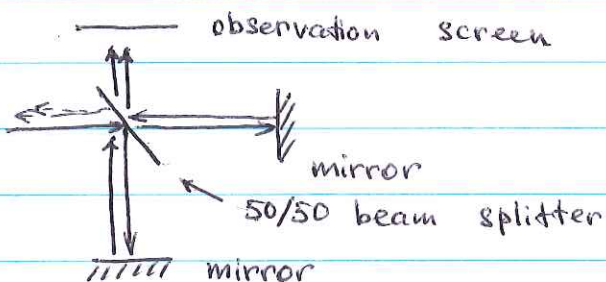 observation screen
mirror
50/50 beam splitter
mirror